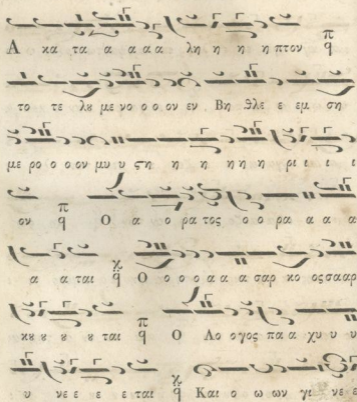 Α κα τα α α α α λη η η η πτον π q
το τε λȣ με νο ο ο ον εν Βη θλε ε εμ ση
με ρο ο ο ον μυ υ ςη η η ηη η ρι ι ι ι
ον π q Ο α ο ρα τος ο ο ρα α α α
α α ται q Ο ο ο ο α α α σαρ κο ος σααρ
κȣ ȣ ȣ ȣ ται π q Ο Λο ογος πα α χυ υ υ
υ νε ε ε ε ται q Και ο ω ων γι νε ε